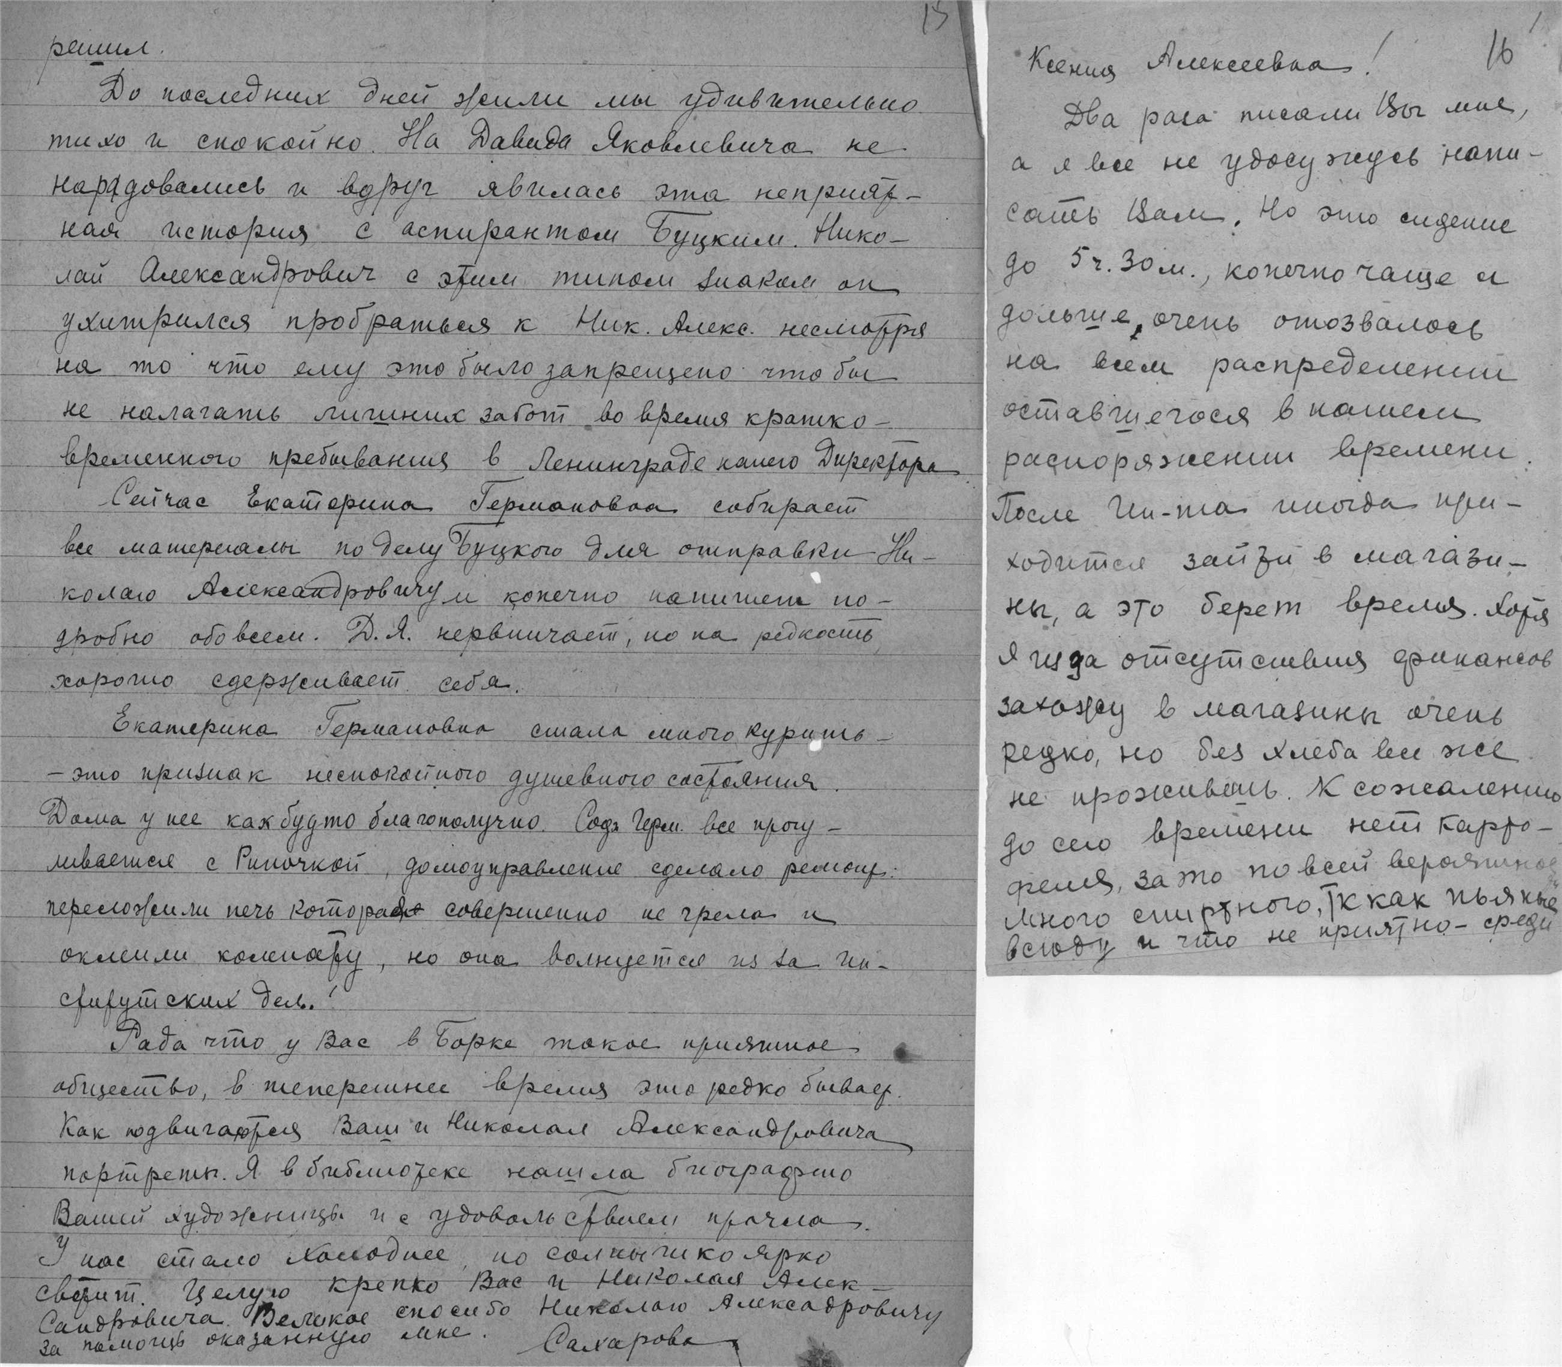 15
решил.
До последних дней жили мы удивительно
тихо и спокойно. На Давида Яковлевича не
нарадовались и вдруг явилась эта неприят-
ная история с аспирантом Буцким. Нико-
лай Александрович с этим типом знаком он
ухитрился пробраться к Ник. Алекс. несмотря
на то что ему это было запрещено чтобы
не налагать лишних забот во время кратко-
временного пребывания в Ленинграде нашего Директора
Сейчас Екатерина Германовна собирает
все материалы по делу Буцкого для отправки Ни-
колаю Александровичу и конечно напишет по-
дробно обо всем. Д.Я. нервничает, но на редкость
хорошо сдерживает себя.
Екатерина Германовна стала много курить -
- это признак неспокойного душевного состояния.
Дома у нее как будто благополучно. Герм. все прогу-
ливается с Риночкой, домоуправление сделало ремонт:
переложили печь которая совершенно не грела и
оклеили комнату, но она волнуется из за ин-
ститутских дел.!
Рада что у Вас в Борке такое приятное
общество, в теперешнее время это редко бывает.
Как подвигаются Ваш и Николая Александровича
портреты. Я в библиотеке нашла биографию
Вашей художницы и с удовольствием прочла.
У нас стало холоднее, но солнышко ярко
светит. Целую крепко Вас и Николая Алек-
сандровича. Великое спасибо Николаю Алексадровичу
за помощь оказанную мне. Сахарова
16
Ксения Алексеевна!
Два раза писали Вы мне,
а я все не удосужусь напи-
сать Вам. Но это сидение
до 5 ч. 30 м., конечно чаще и
дольше, очень отозвалось
на всем распределении
оставшегося в нашем
распоряжении времени.
После Ин-та иногда при-
ходится зайти в магази-
ны, а это берет время. Хотя
я из за отсутствия финансов
захожу в магазины очень
редко, но без хлеба все же
не проживешь. К сожалению
до сего времени нет карто-
феля, зато по всей
много спиртного, тк как пьяные
всюду и что не приятно - среди